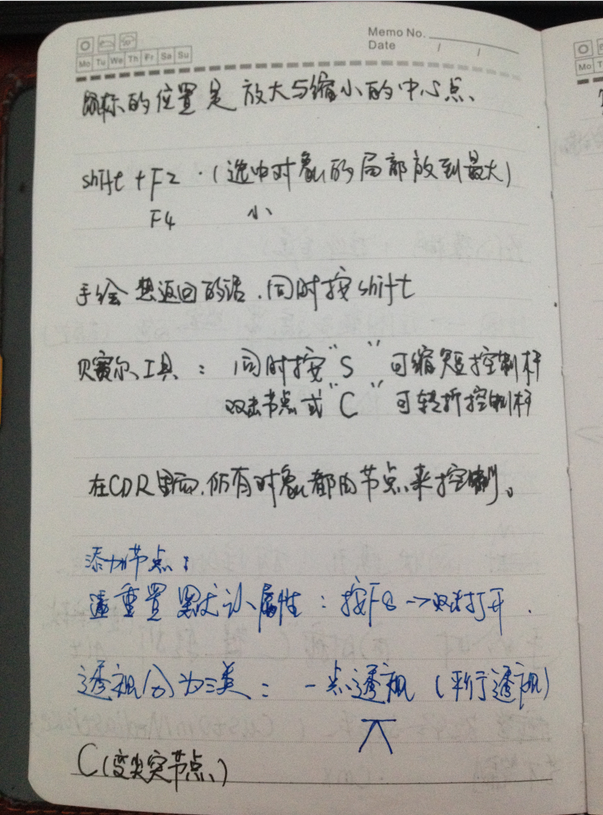 Memo No.
Date / /
Mo Tu We Th Fr Sa Su
鼠标的位置是放大与缩小的中心点、
shift + F2 .（选中对象的局部放到最大）
F4 小
手绘想返回的话，同时按shift
贝赛尔工具：同时按"S"可缩短控制杆
双击节点或"C"可转折控制杆
在CDR里面，所有对象都由节点来控制。
添加节点：
重置默认属性：按F8→双击打开．
透视分为三类：一点透视（平行透视）
C（变尖突节点）
Mo